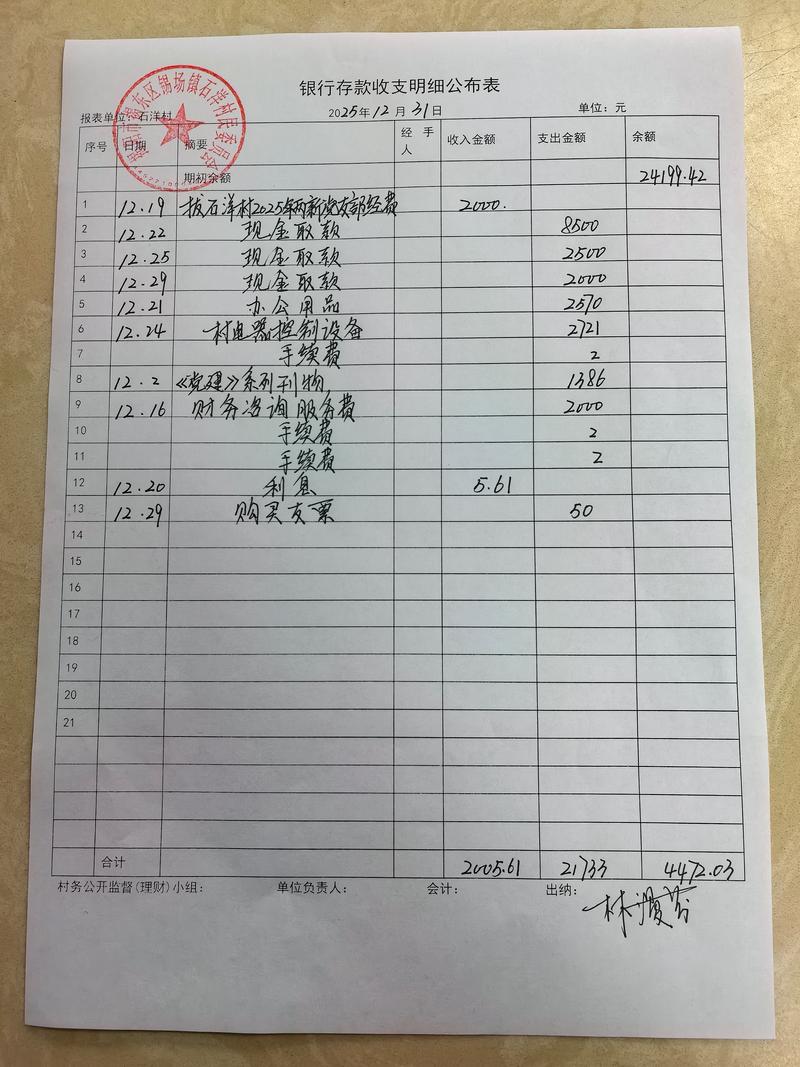 银行存款收支明细公布表
报表单位：石洋村 2025年12月31日 单位：元
揭阳市揭东区锡场镇石洋村民委员会
序号 日期 摘要 经手人 收入金额 支出金额 余额
期初余额 24199.42
1 12.19 拔石洋村2025年两新党支部经费 2000.
2 12.22 现金取款 8500
3 12.25 现金取款 2500
4 12.29 现金取款 2000
5 12.21 办公用品 2570
6 12.24 村电器控制设备 2721
7 手续费 2
8 12.2 《党建》系列刊物 1386
9 12.16 财务咨询服务费 2000
10 手续费 2
11 手续费 2
12 12.20 利息 5.61
13 12.29 购买支票 50
14
15
16
17
18
19
20
21
合计 2005.61 21733 4472.03
村务公开监督(理财)小组： 单位负责人： 会计： 出纳：林